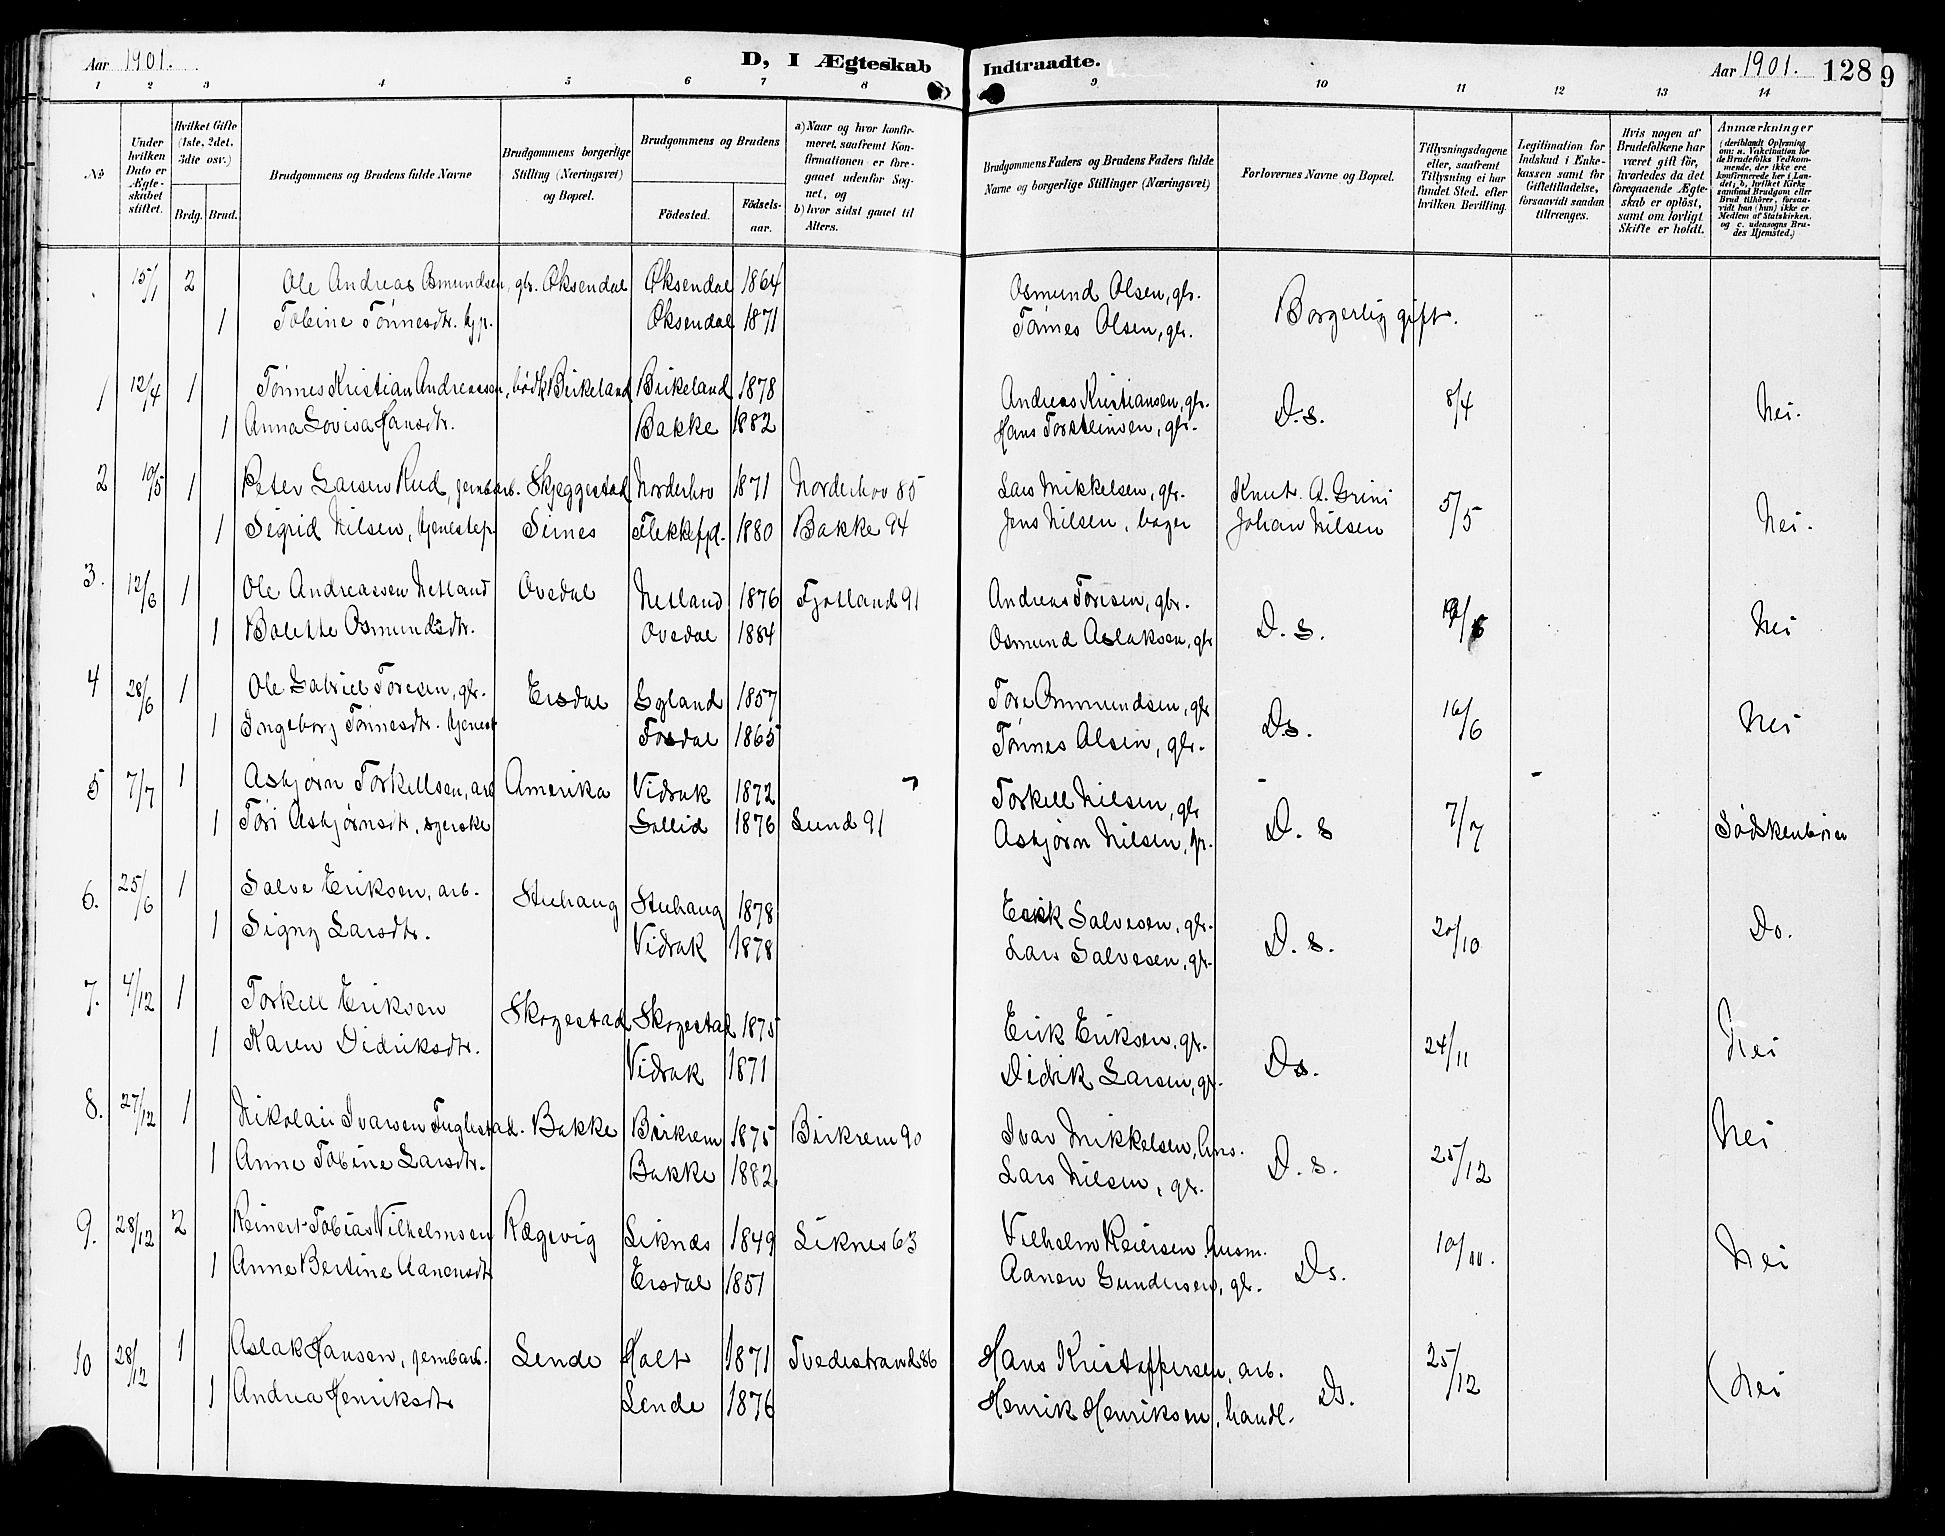 Aar 1901.
D, I Ægteskab Indtraadte.
Aar 1901. 128 9
1 2 3 4 5 6 7 8 9 10 11 12 13 14
№
Under hvilken Dato er Ægteskabet stiftet.
Hvilket Gifte (1ste, 2det, 3die osv.)
Brdg. Brud.
Brudgommens og Brudens fulde Navne
Brudgommens borgerlige Stilling (Næringsvei) og Bopæl.
Brudgommens og Brudens
Fødested. Fødselsaar.
a) Naar og hvor konfirmeret, saafremt Konfirmationen er foregaaet udenfor Sognet, og
b) hvor sidst gaaet til Alters.
Brudgommens Faders og Brudens Faders fulde Navne og borgerlige Stillinger (Næringsvei)
Forlovernes Navne og Bopæl.
Tillysningsdagene eller, saafremt Tillysning ei har fundet Sted, efter hvilken Bevilling.
Legitimation for Indskud i Enkekassen samt for Giftetilladelse, forsaavidt saadan tiltrænges.
Hvis nogen af Brudefolkene har været gift før, hvorledes da det foregaaende Ægteskab er opløst, samt om lovligt Skifte er holdt.
Anmærkninger (deriblandt Oplysning om: a. Vakcination for de Brudefolks Vedkommende, der ikke ere konfirmerede her i Landet; b, hvilket Kirkesamfund Brudgom eller Brud tilhører, forsaavidt han (hun) ikke er Medlem af Statskirken, og c. udensogns Brudes Hjemsted.)
15/1 2 Ole Andreas Osmundsen, gbr. Øksendal Øksendal 1864 Osmund Olsen, gbr. Borgerlig gift.
1 Tobine Tønnesdtr. Øksendal 1871 Tønnes Olsen, gbr.
1 12/4 1 Tønnes Kristian Andreassen, bødk. Birkeland Birkeland 1878 Andreas Kristiansen, gbr. D.s. 8/4 Nei.
1 Anna Lovisa Hansdtr. Bakke 1882 Hans Torsteinsen, gbr.
2 10/5 1 Peter Larsen Rud, jernbarb. Skjeggestad Norderhov 1871 Norderhov 85 Lars Mikkelsen, gbr. Knut A. Grini 5/5 Nei.
1 Sigrid Nilsen, tjenestep. Sirnes Flekkefjd. 1880 Bakke 94 Jens Nilsen, bager Johan Nilsen
3. 12/6 1 Ole Andreassen Netland Ovedal Netland 1876 Fjotland 91 Andreas Toresen, gbr. D.s. Nei
1 Bolette Osmundsdtr. Ovedal 1884 Osmund Aslaksen, gbr
4 28/6 1 Ole Gabriel Toresen, gbr. Ersdal Egeland 1857 Tore Ommundsen, gbr Ds. 16/6 Nei
1 Ingeborg Tønnesdtr. tjenest Fosdal 1865 Tønnes Olsen, gbr.
5 7/7 1 Asbjørn Torkellsen, arb Amerika Vidrak 1872 Torkell Nilsen, gbr D.s 7/7 Sødskenbørn
1 Tori Asbjørnsdtr, syerske Sollid 1876 Lund 91 Asbjørn Nilsen, gbr.
6. 25/6 1 Salve Eriksen, arb. Stuhaug Stuhaug 1878 Erik Salvesen, gbr. D.s. 20/10 Do.
1 Signy Larsdtr. Vidrak 1878 Lars Salvesen, gbr.
7. 4/12 1 Torkell Eriksen Skogestad Skogestad 1875 Erik Eriksen, gbr. Ds. 24/11 Nei
1 Karen Didriksdtr. Vidrak 1871 Didrik Larsen, gbr.
8. 27/12 1 Nikolai Ivarsen Fuglestad. Bakke Birkrem 1875 Birkrem 90 Ivar Mikkelsen, D.s. 25/12 Nei
1 Anne Tobine Larsdtr. Bakke 1882 Lars Nilsen, gbr.
9. 28/12 2 Reinert Tobias Vilhelmsen Rægevig Liknes 1849 Liknes 63 Vilhelm Reiersen husm. Ds. Nei
1 Anne Bertine Aanensdtr Ersdal 1851 Aanen Gundersen, gbr.
10 28/12 1 Aslak Hansen, jernbarb. Lende Holt 1871 Tvedestrand 86 Hans Kristoffersen, arb. Ds. 25/12 Nei
1 Andrea Henriksdtr Lende 1876 Henrik Henriksen, handl.